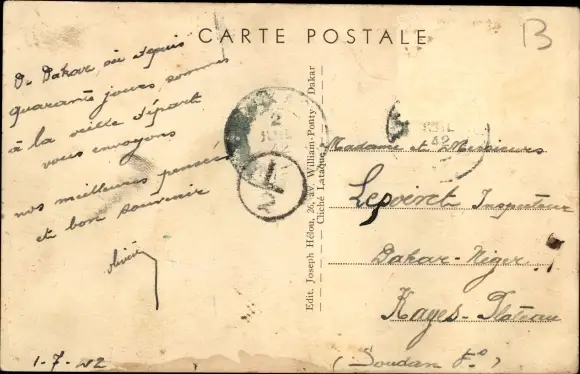 CARTE POSTALE
B
D. Dakar, où depuis
quarante jours, sommes
à la veille départ
vous envoyons
nos meilleures pensées
et bon souvenir
1-7-42
2
JUIL
42
JUIL
42
Edit. Joseph Hélou, 26, av. William-Ponty, Dakar
Cliché Lataque
Madame et Messieurs
Lepoivret Inspecteur
Dakar-Niger
Kayes-Plateau
(Soudan Fº)